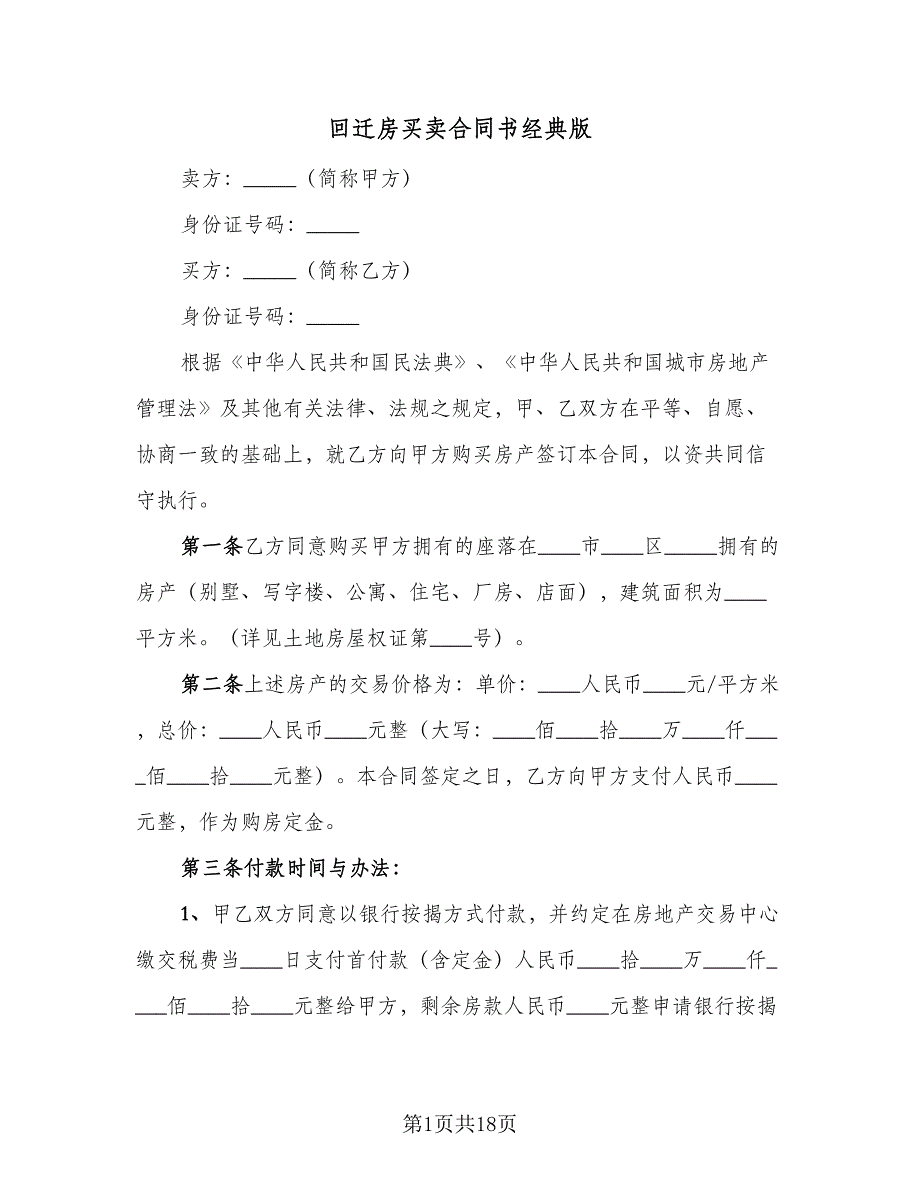 回迁房买卖合同书经典版
卖方：_____（简称甲方）
身份证号码：_____
买方：_____（简称乙方）
身份证号码：_____
根据《中华人民共和国民法典》、《中华人民共和国城市房地产
管理法》及其他有关法律、法规之规定，甲、乙双方在平等、自愿、
协商一致的基础上，就乙方向甲方购买房产签订本合同，以资共同信
守执行。
第一条乙方同意购买甲方拥有的座落在____市____区_____拥有的
房产（别墅、写字楼、公寓、住宅、厂房、店面），建筑面积为____
平方米。（详见土地房屋权证第____号）。
第二条上述房产的交易价格为：单价：____人民币____元/平方米
，总价：____人民币____元整（大写：____佰____拾____万____仟___
_佰____拾____元整）。本合同签定之日，乙方向甲方支付人民币____
元整，作为购房定金。
第三条付款时间与办法：
1、甲乙双方同意以银行按揭方式付款，并约定在房地产交易中心
缴交税费当____日支付首付款（含定金）人民币____拾____万____仟_
___佰____拾____元整给甲方，剩余房款人民币____元整申请银行按揭
第1页共18页